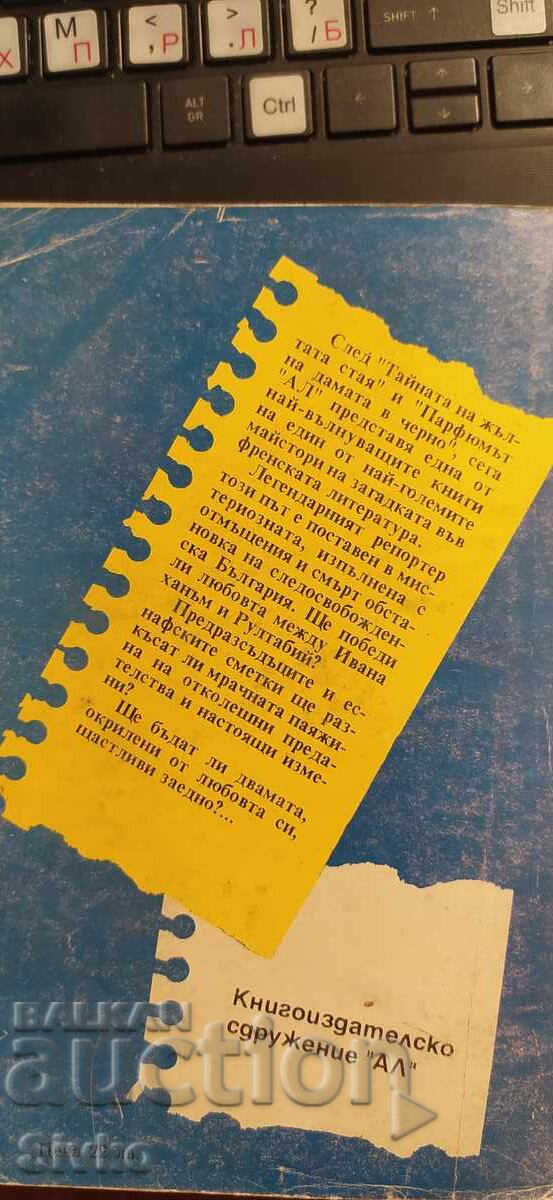 М П
< , Р
> . Л
? / Б
SHIFT
Shift
ALT GR
Ctrl
След "Тайната на жъл-
тата стая" и "Парфюмът
на дамата в черно", сега
"АЛ" представя една от
най-вълнуващите книги
на един от най-големите
майстори на загадката във
френската литература.
Легендарният репортер
този път е поставен в мис-
териозната, изпълнена с
отмъщения и смърт обста-
новка на следосвобожден-
ска България. Ще победи
ли любовта между Ивана
ханъм и Рултабий?
Предразсъдъците и ес-
нафските сметки ще раз-
късат ли мрачната паяжи-
на на отколешни преда-
телства и настоящи изме-
ни?
Ще бъдат ли двамата,
окрилени от любовта си,
щастливи заедно?...
Книгоиздателско
сдружение "АЛ"
BALKAN
auction
Sivko
Цена 22 лв.